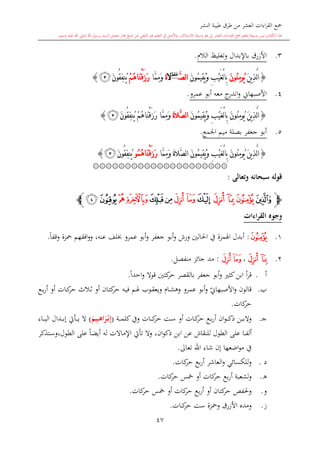 جمع القراءات العشر من طرق طيبة النشر
٣. الأزرق بالإبدال وتغليظ اللام.
﴿ ٱلَّذِينَ يُومِنُونَ بِٱلْغَيْبِ وَيُقِيمُونَ ٱلصَّلَاةَ وَمِمَّا رَزَقْنَٰهُمْ يُنفِقُونَ ٣ ﴾
٤. الأصبهاني واندرج معه أبو عمرو.
﴿ ٱلَّذِينَ يُومِنُونَ بِٱلْغَيْبِ وَيُقِيمُونَ ٱلصَّلَاةَ وَمِمَّا رَزَقْنَٰهُمْ يُنفِقُونَ ٣ ﴾
٥. أبو جعفر بصلة ميم الجمع.
﴿ ٱلَّذِينَ يُومِنُونَ بِٱلْغَيْبِ وَيُقِيمُونَ ٱلصَّلَاةَ وَمِمَّا رَزَقْنَٰهُمُو يُنفِقُونَ ٣ ﴾
قوله سبحانه وتعالى :
﴿ وَٱلَّذِينَ يُؤْمِنُونَ بِمَآ أُنزِلَ إِلَيْكَ وَمَآ أُنزِلَ مِن قَبْلِكَ وَبِٱلْأَخِرَةِ هُمْ يُوقِنُونَ ٤ ﴾
وجوه القراءات
١. يُؤْمِنُونَ : أبدل الهمزة في الحالين ورش وأبو جعفر وأبو عمرو بخلف عنه، ووافقهم حمزة وقفاً.
٢. بِمَآ أُنزِلَ ، وَمَآ أُنزِلَ : مد جائز منفصل.
أ . قرأ ابن كثير وأبو جعفر بالقصر حركتين قولا واحداً.
ب. قالون والأصبهانيّ وأبو عمرو وهشام ويعقوب لهم فيه حركتان أو ثلاث حركات أو أربع
حركات.
ج. ولابن ذكوان أربع حركات أو ست حركات وفي كلمة (إِبْرَاهِيم) لا يأتي إبدال الياء
ألفا على الطول للنقاش عن ابن ذكوان، ولا تأتي الإمالات له أيضاً على الطول،وستذكر
في مواضعها إن شاء الله تعالى.
د . وللكسائي والعاشر أربع حركات.
ه. ولشعبة أربع حركات أو خمس حركات.
و. ولحفص حركتان أو أربع حركات أو خمس حركات.
ز. ومده الأزرق وحمزة ست حركات.
٤٧